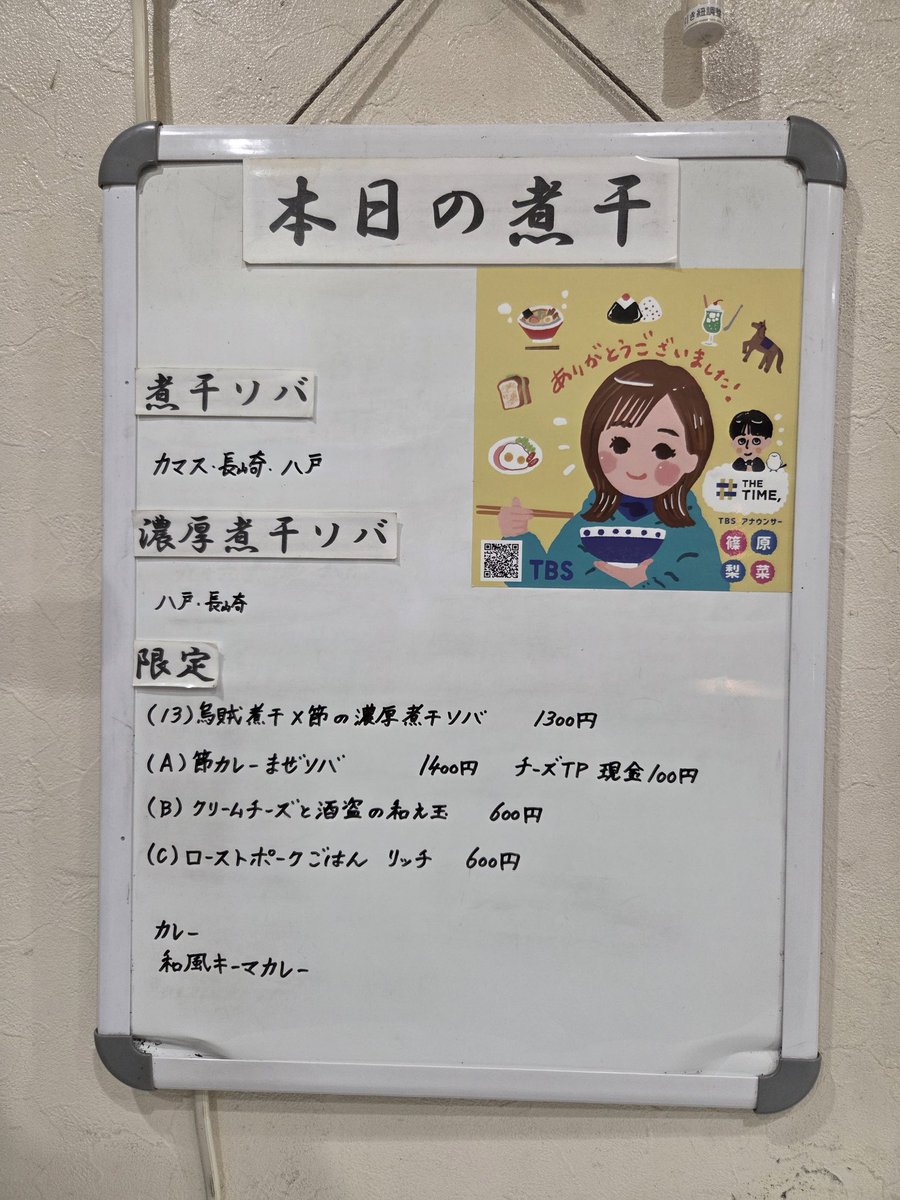 本日の煮干
ありがとうございました!
煮干ソバ
カマス・長崎・八戸
# THE TIME,
TBS アナウンサー
篠原
梨菜
TBS
濃厚煮干ソバ
八戸・長崎
限定
(13)烏賊煮干×節の濃厚煮干ソバ 1300円
(A)節カレーまぜソバ 1400円 チーズTP 現金100円
(B)クリームチーズと酒盗の和え玉 600円
(C)ローストポークごはん リッチ 600円
カレー
和風キーマカレー